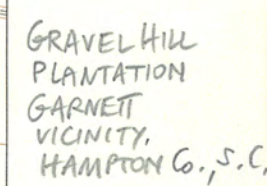 GRAVEL HILL
PLANTATION
GARNETT
VICINITY.
HAMPTON Co., S.C.